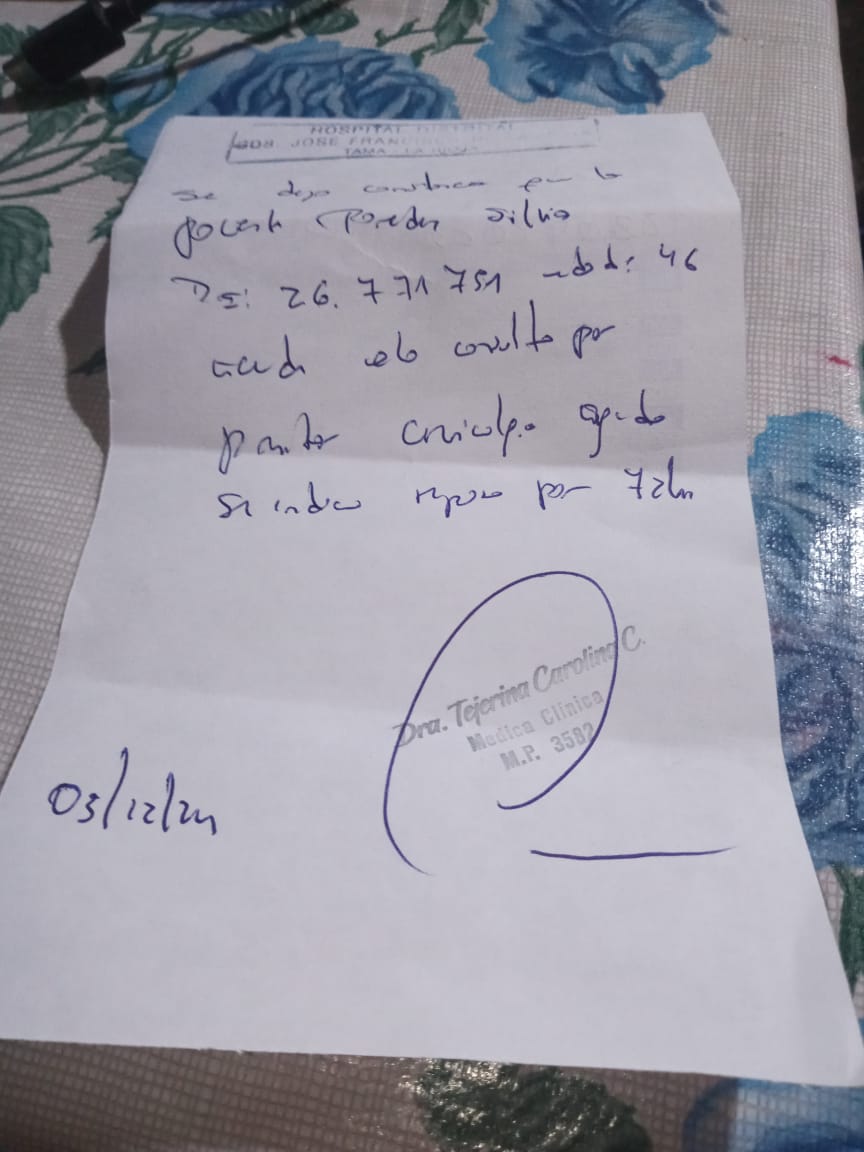 HOSPITAL DISTRITAL
GOB. JOSE FRAN
TAMA - LA RIOJA
Se deja constancia que la
paciente Paredes Silvia
DNI: 26.771751 edad: 46
acude a la consulta por
cervicalgia aguda
Se indica reposo por 72hs
Dra. Tejerina Carolina C.
Medica Clinica
M.P. 3582
03/12/24